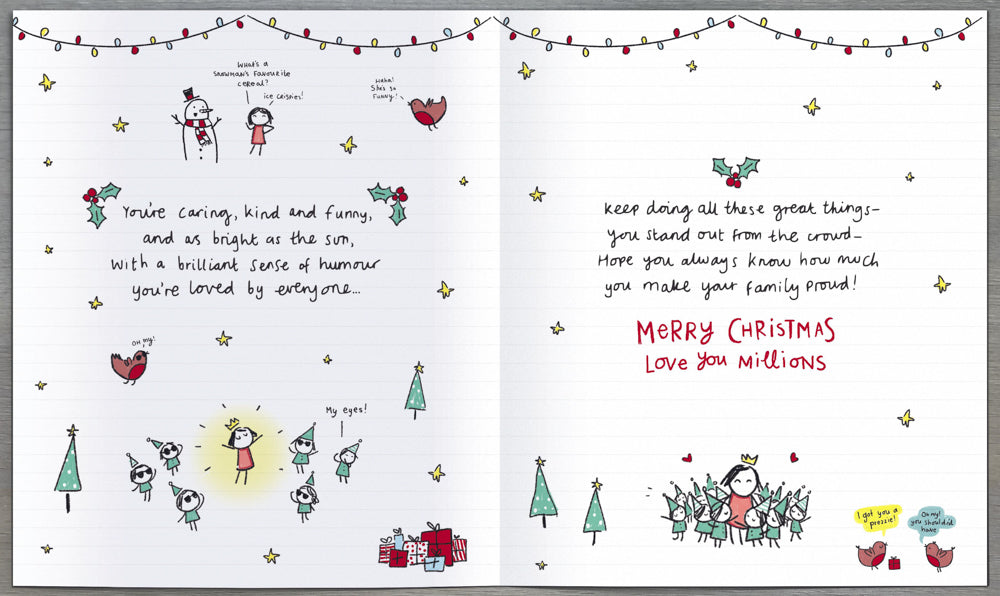 What's a
snowman's favourite
cereal?
ice crispies!
Haha!
She's so
funny!
You're caring, kind and funny,
and as bright as the sun,
with a brilliant sense of humour
you're loved by everyone...
oh my!
My eyes!
Keep doing all these great things–
you stand out from the crowd–
Hope you always know how much
you make your family proud!
MERRY CHRISTMAS
Love you Millions
I got you a
prezzie!
Oh my!
you shouldn't
have